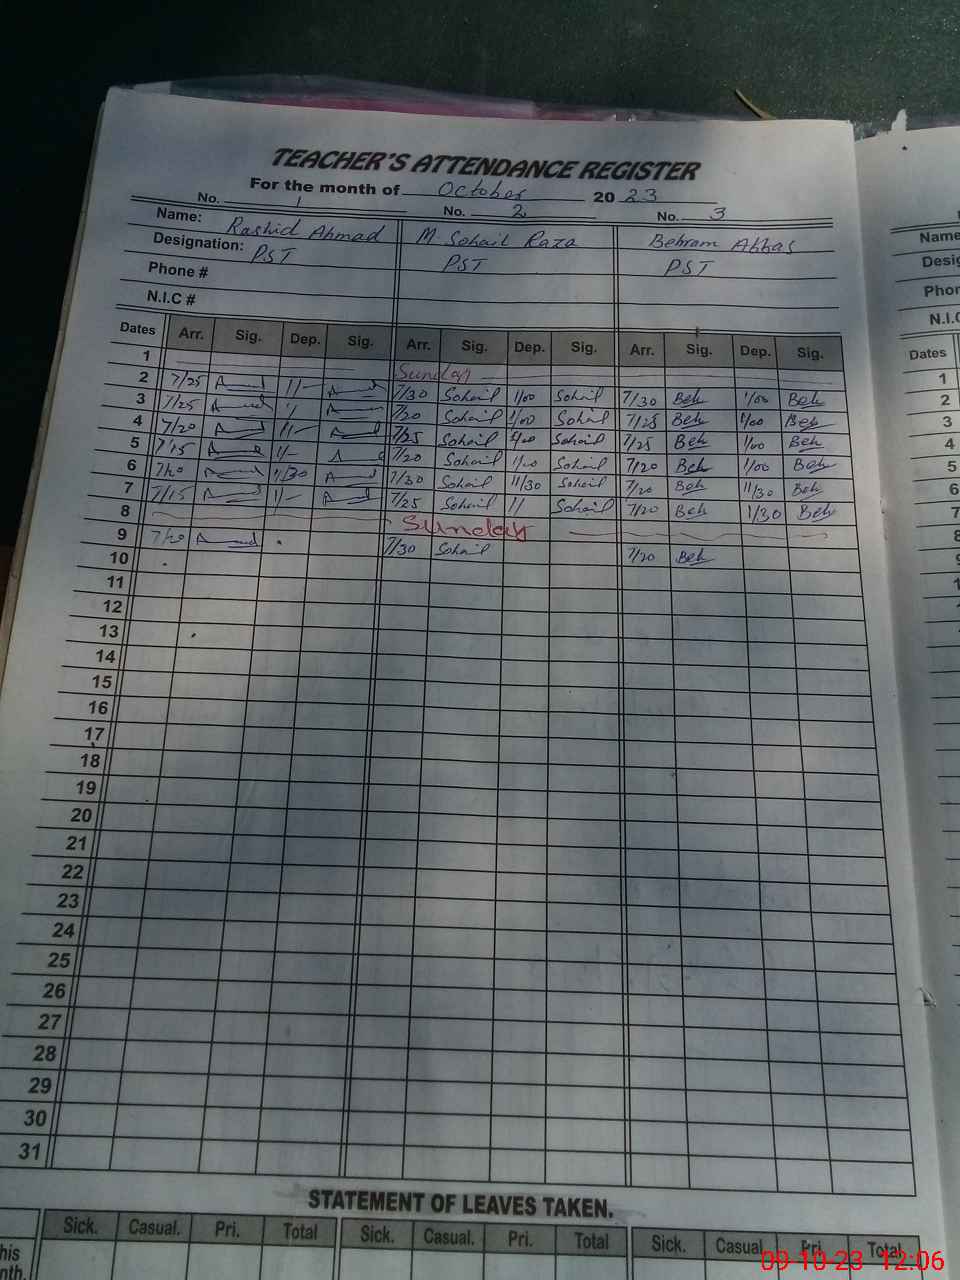 TEACHER'S ATTENDANCE REGISTER
For the month of October 2023
No. 1 No. 2 No. 3
Name: Rashid Ahmad M Sohail Raza Behram Abbas Name
Designation: PST PST PST
Phone # Phon
N.I.C # N.I.C
Dates Arr. Sig. Dep. Sig. Arr. Sig. Dep. Sig. Arr. Sig. Dep. Sig. Dates
1 Sunday 1
2 7/25 7/30 Sohail 1/00 Sohail 7/30 Beh 1/00 Beh 2
3 7/25 7/20 Sohail 1/00 Sohail 7/25 Beh 1/00 Beh 3
4 7/20 7/25 Sohail 1/00 Sohail 7/25 Beh 1/00 Beh 4
5 7/15 7/20 Sohail 1/00 Sohail 7/20 Beh 1/00 Beh 5
6 7/20 11/30 7/30 Sohail 11/30 Sohail 7/20 Beh 11/30 Beh 6
7 7/15 7/25 Sohail 1/ Sohail 7/20 Beh 1/30 Beh 7
8 Sunday 8
9 7/20 7/30 Sohail 7/20 Beh 9
10
11
12
13
14
15
16
17
18
19
20
21
22
23
24
25
26
27
28
29
30
31
STATEMENT OF LEAVES TAKEN.
Sick. Casual. Pri. Total Sick. Casual. Pri. Total Sick. Casual Pri. Total
his
nth.
09-10-23 12:06